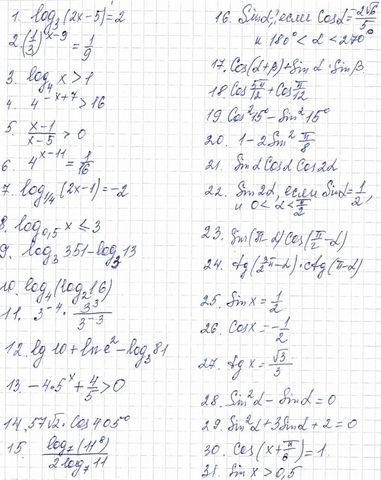 1. log₃(2x-5)=2
2. (1/3)^(x-9) = 1/9
3. log₄ x > 1
4. 4^(-x+7) > 16
5. (x-1)/(x-5) > 0
6. 4^(x-11) = 1/16
7. log_(1/4) (2x-1) = -2
8. log_(0,5) x ≤ 3
9. log₃ 351 - log₃ 13
10. log₄(log₂ 16)
11. 3^(-4) · 3³/3^(-3)
12. lg 10 + ln e² - log₃ 81
13. -4·5^x + 4/5 > 0
14. 57√2 · cos 405°
15. log₇(11⁸)/(2log₇ 11)
16. Sin α, если Cos α = -2√6/5
и 180° < α < 270°
17. Cos(α+β)+Sin α · Sin β
18 Cos 5π/12 + Cos π/12
19. Cos²15° - Sin²15°
20. 1-2Sin² π/8
21. Sin α Cos α Cos 2α
22. Sin 2α, если Sin α = 1/2,
и 0 < α < π/2
23. Sin(π-α)Cos(π/2-α)
24. tg(3π/2-α)·ctg(π-α)
25. Sin x = 1/2
26. Cos x = -1/2
27. tg x = √3/3
28. Sin²α - Sin α = 0
29. Sin²α + 3Sin α + 2 = 0
30. Cos(x+π/6) = 1.
31. Sin x > 0,5